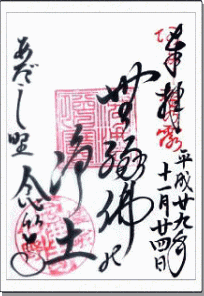 奉拝
平成廿九年
十一月廿四日
無縁佛の
浄土
あだし野念佛寺